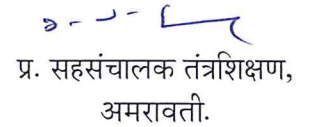 प्र. सहसंचालक तंत्रशिक्षण,
अमरावती.